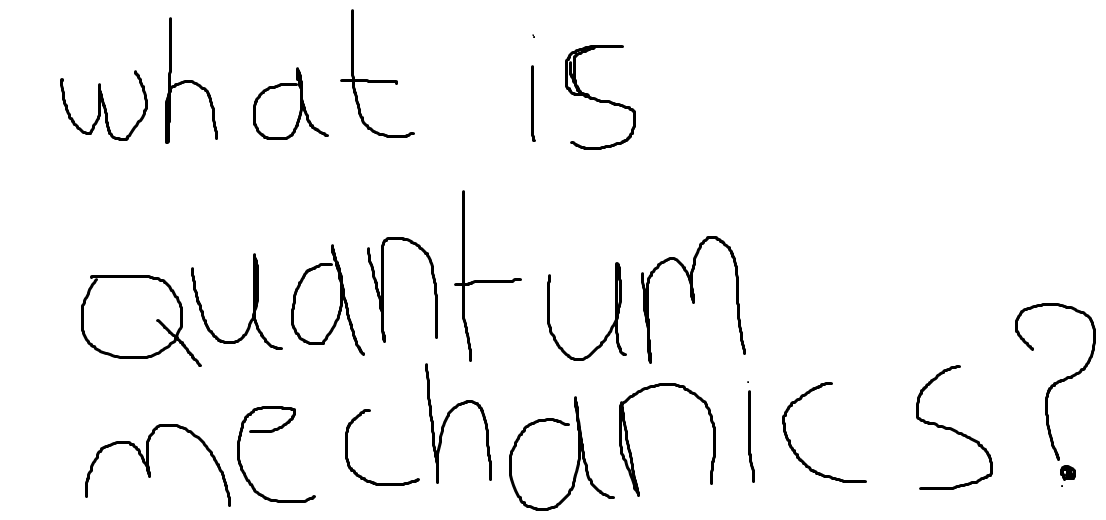 what is
Quantum
mechanics?